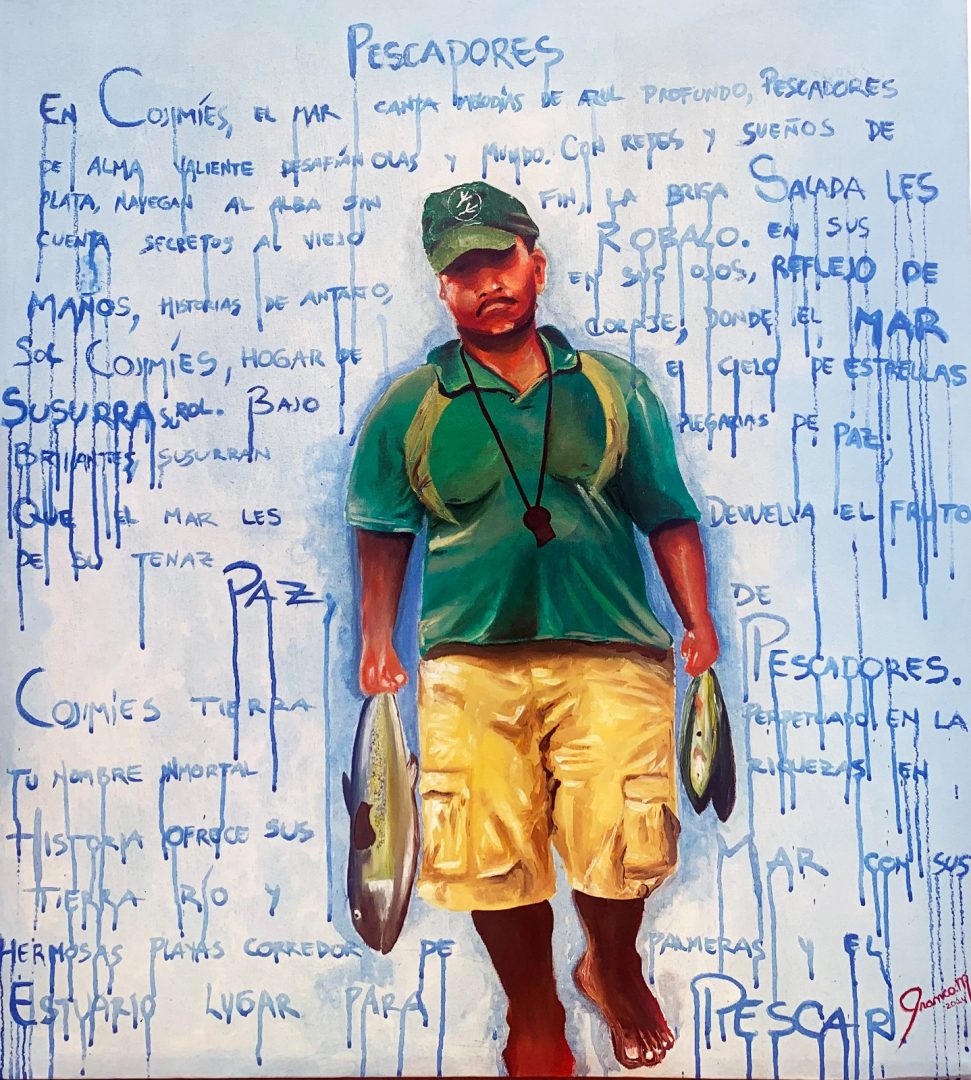 PESCADORES
EN COJIMÍES, EL MAR CANTA MELODÍAS DE AZUL PROFUNDO, PESCADORES
DE ALMA VALIENTE DESAFÍAN OLAS Y MUNDO. CON REDES Y SUEÑOS DE
PLATA, NAVEGAN AL ALBA SIN FIN, LA BRISA SALADA LES
CUENTA SECRETOS AL VIEJO ROBALO. EN SUS
MANOS, HISTORIAS DE ANTAÑO, EN SUS OJOS, REFLEJO DE
CORAJE, DONDE EL MAR
SOL COJIMÍES, HOGAR DE EL CIELO DE ESTRELLAS
SUSURRA SU ROL. BAJO PLEGARIAS DE PAZ,
BRILLANTES, SUSURRAN
QUE EL MAR LES DEVUELVA EL FRUTO
DE SU TENAZ
PAZ, DE
PESCADORES.
COJIMÍES TIERRA PERPETUADO EN LA
TU NOMBRE INMORTAL RIQUEZAS EN
HISTORIA OFRECE SUS MAR CON SUS
TIERRA RÍO Y
HERMOSAS PLAYAS CORREDOR DE PALMERAS Y EL
ESTUARIO LUGAR PARA PESCAR
2024